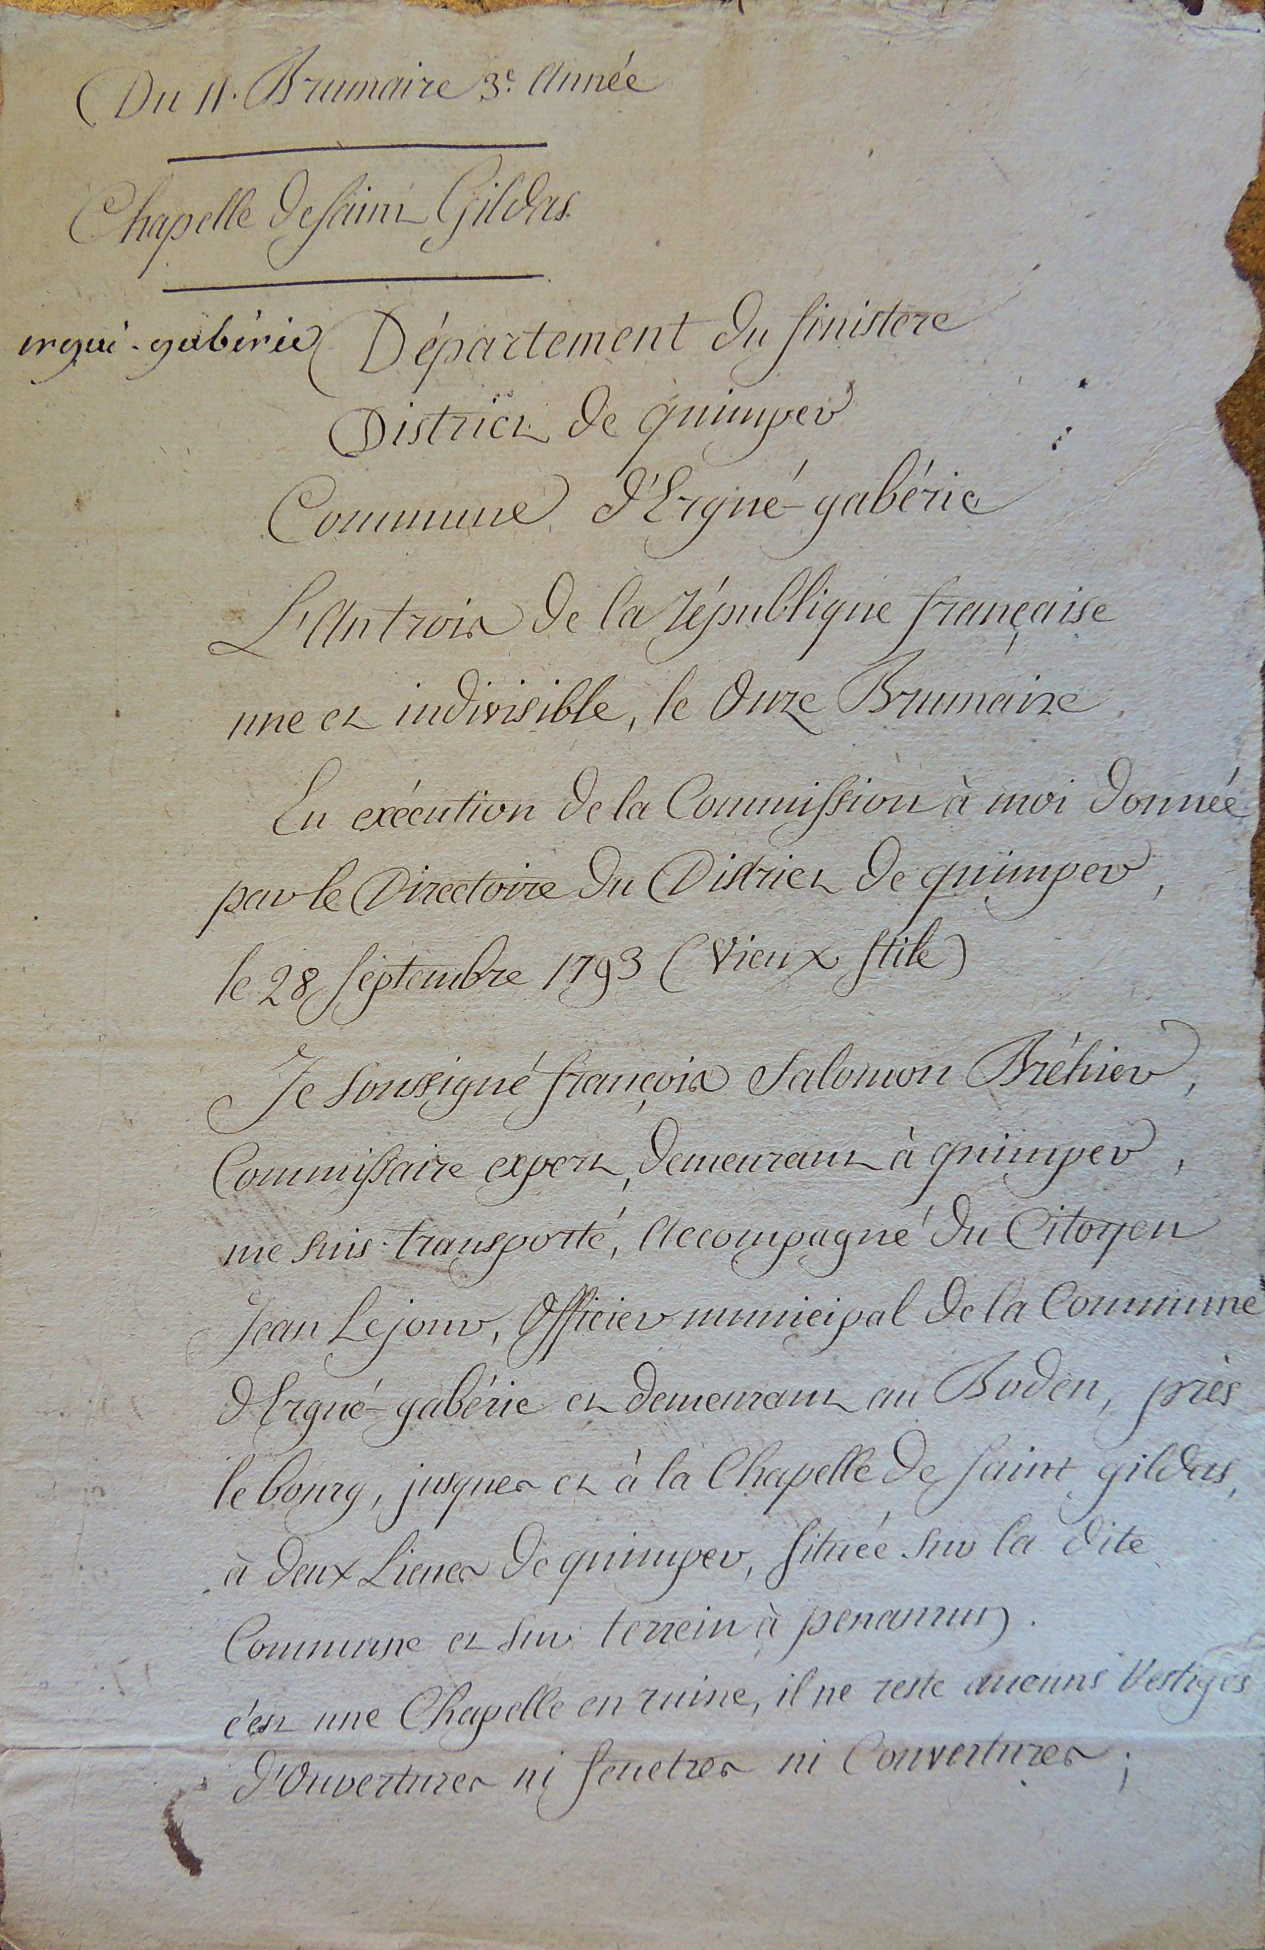 Du 11. Brumaire 3e. Année
Chapelle de saint Gildas.
ergué-gabéric
Département du finistere
District de quimper
Commune d'Ergué-gabéric
L'An trois de la république française
une et indivisible, le Onze Brumaire,
En exécution de la Commission à moi donnée
par le Directoire du District de quimper,
le 28 septembre 1793 (Vieux stile)
Je soussigné françois Salomon Bréhier,
Commissaire expert, demeurant à quimper,
me suis transporté, Accompagné du Citoyen
Jean Lejour, Officier municipal de la Commune
d'Ergué-gabéric et demeurant au Boden, près
le bourg, jusques et à la Chapelle de saint gildas,
à deux Lieues de quimper, située sur la dite
Commune et sur terrein à penarun).
c'est une Chapelle en ruine, il ne reste aucuns Vestiges
d'Ouvertures ni fenetres ni Couvertures;